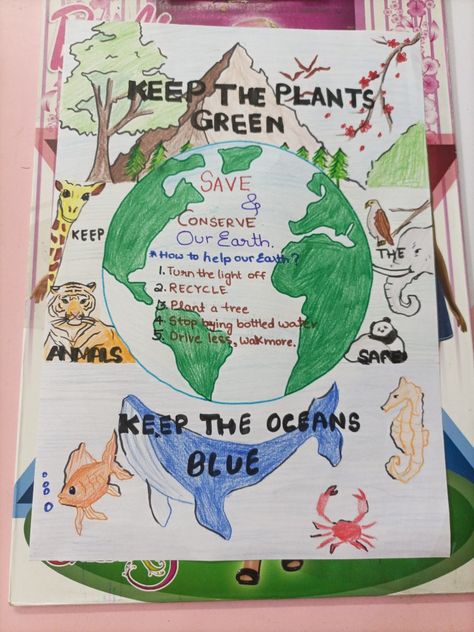 KEEP THE PLANTS
GREEN
SAVE
&
CONSERVE
Our EARTH.
*How to help our Earth?
1. Turn the light off
2. RECYCLE
3. Plant a tree
4. Stop bying bottled water
5. Drive less, walk more.
KEEP
THE
ANIMALS
SAFE
KEEP THE OCEANS
BLUE